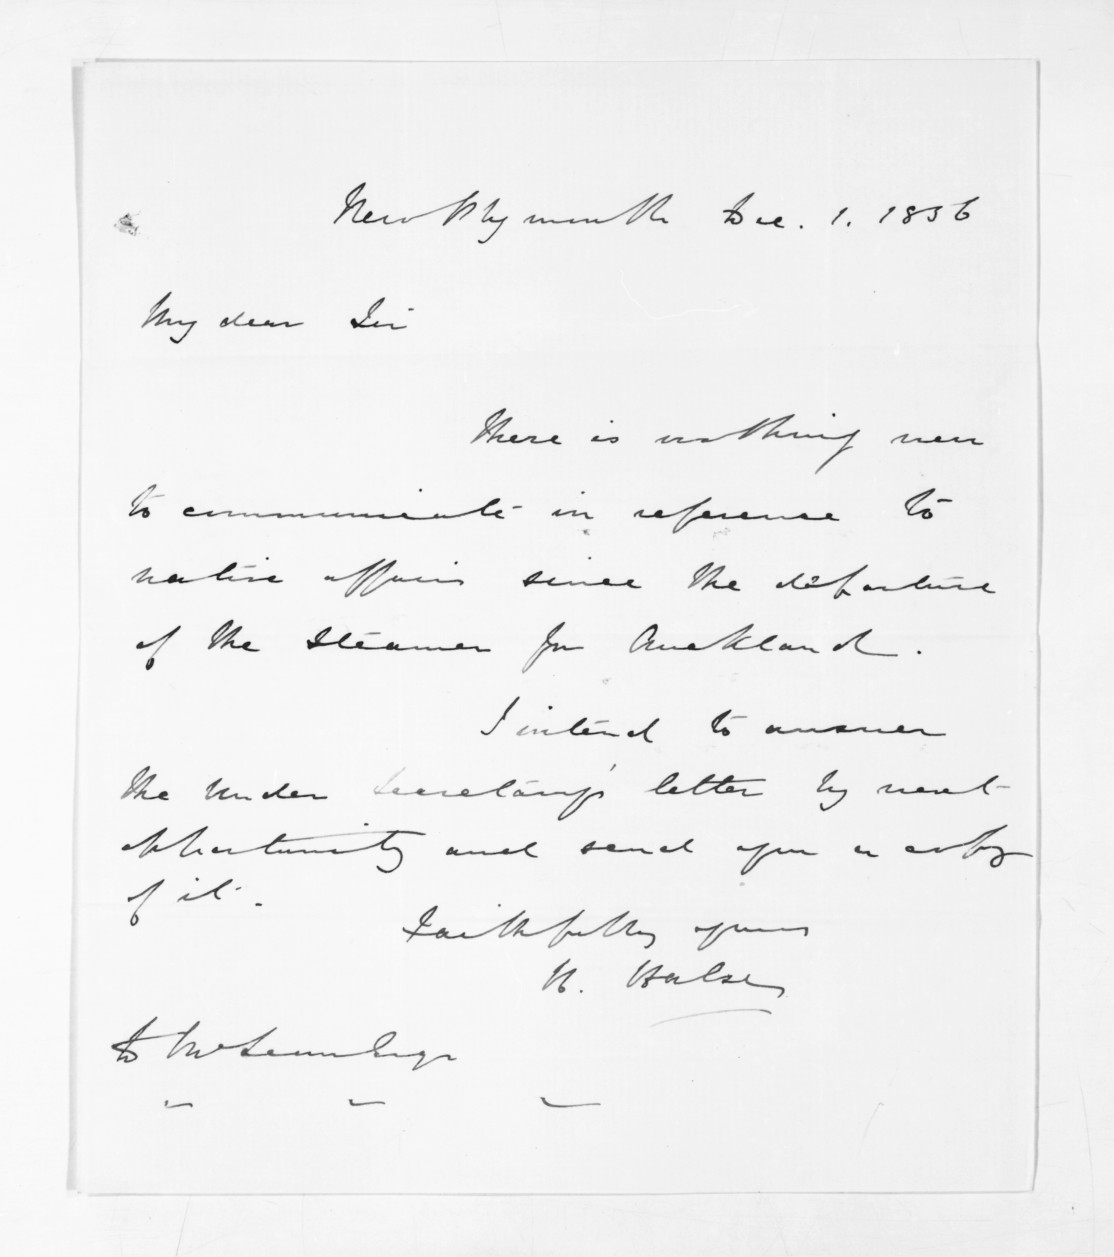 New Plymouth Dec. 1. 1856
My dear Sir
There is nothing new
to communicate in reference to
native affairs since the departure
of the Steamer for Auckland.
I intend to answer
the Under Secretary's letter by next
opportunity and send you a copy
of it.
Faithfully yours
H. Halse
D McLean Esqr
" " "